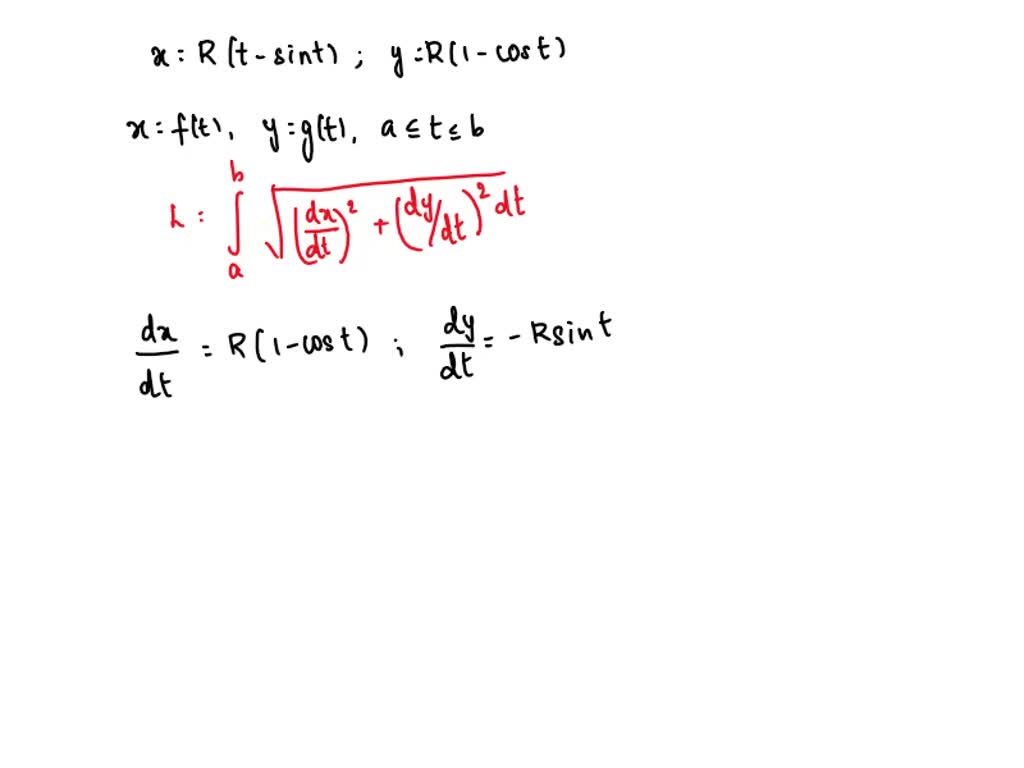 x = R (t - sint) ; y = R(1 - cost)
x = f(t), y = g(t), a ≤ t ≤ b
L = ∫_a^b √((dx/dt)² + (dy/dt)²) dt
dx/dt = R(1-cost) ; dy/dt = - R sint